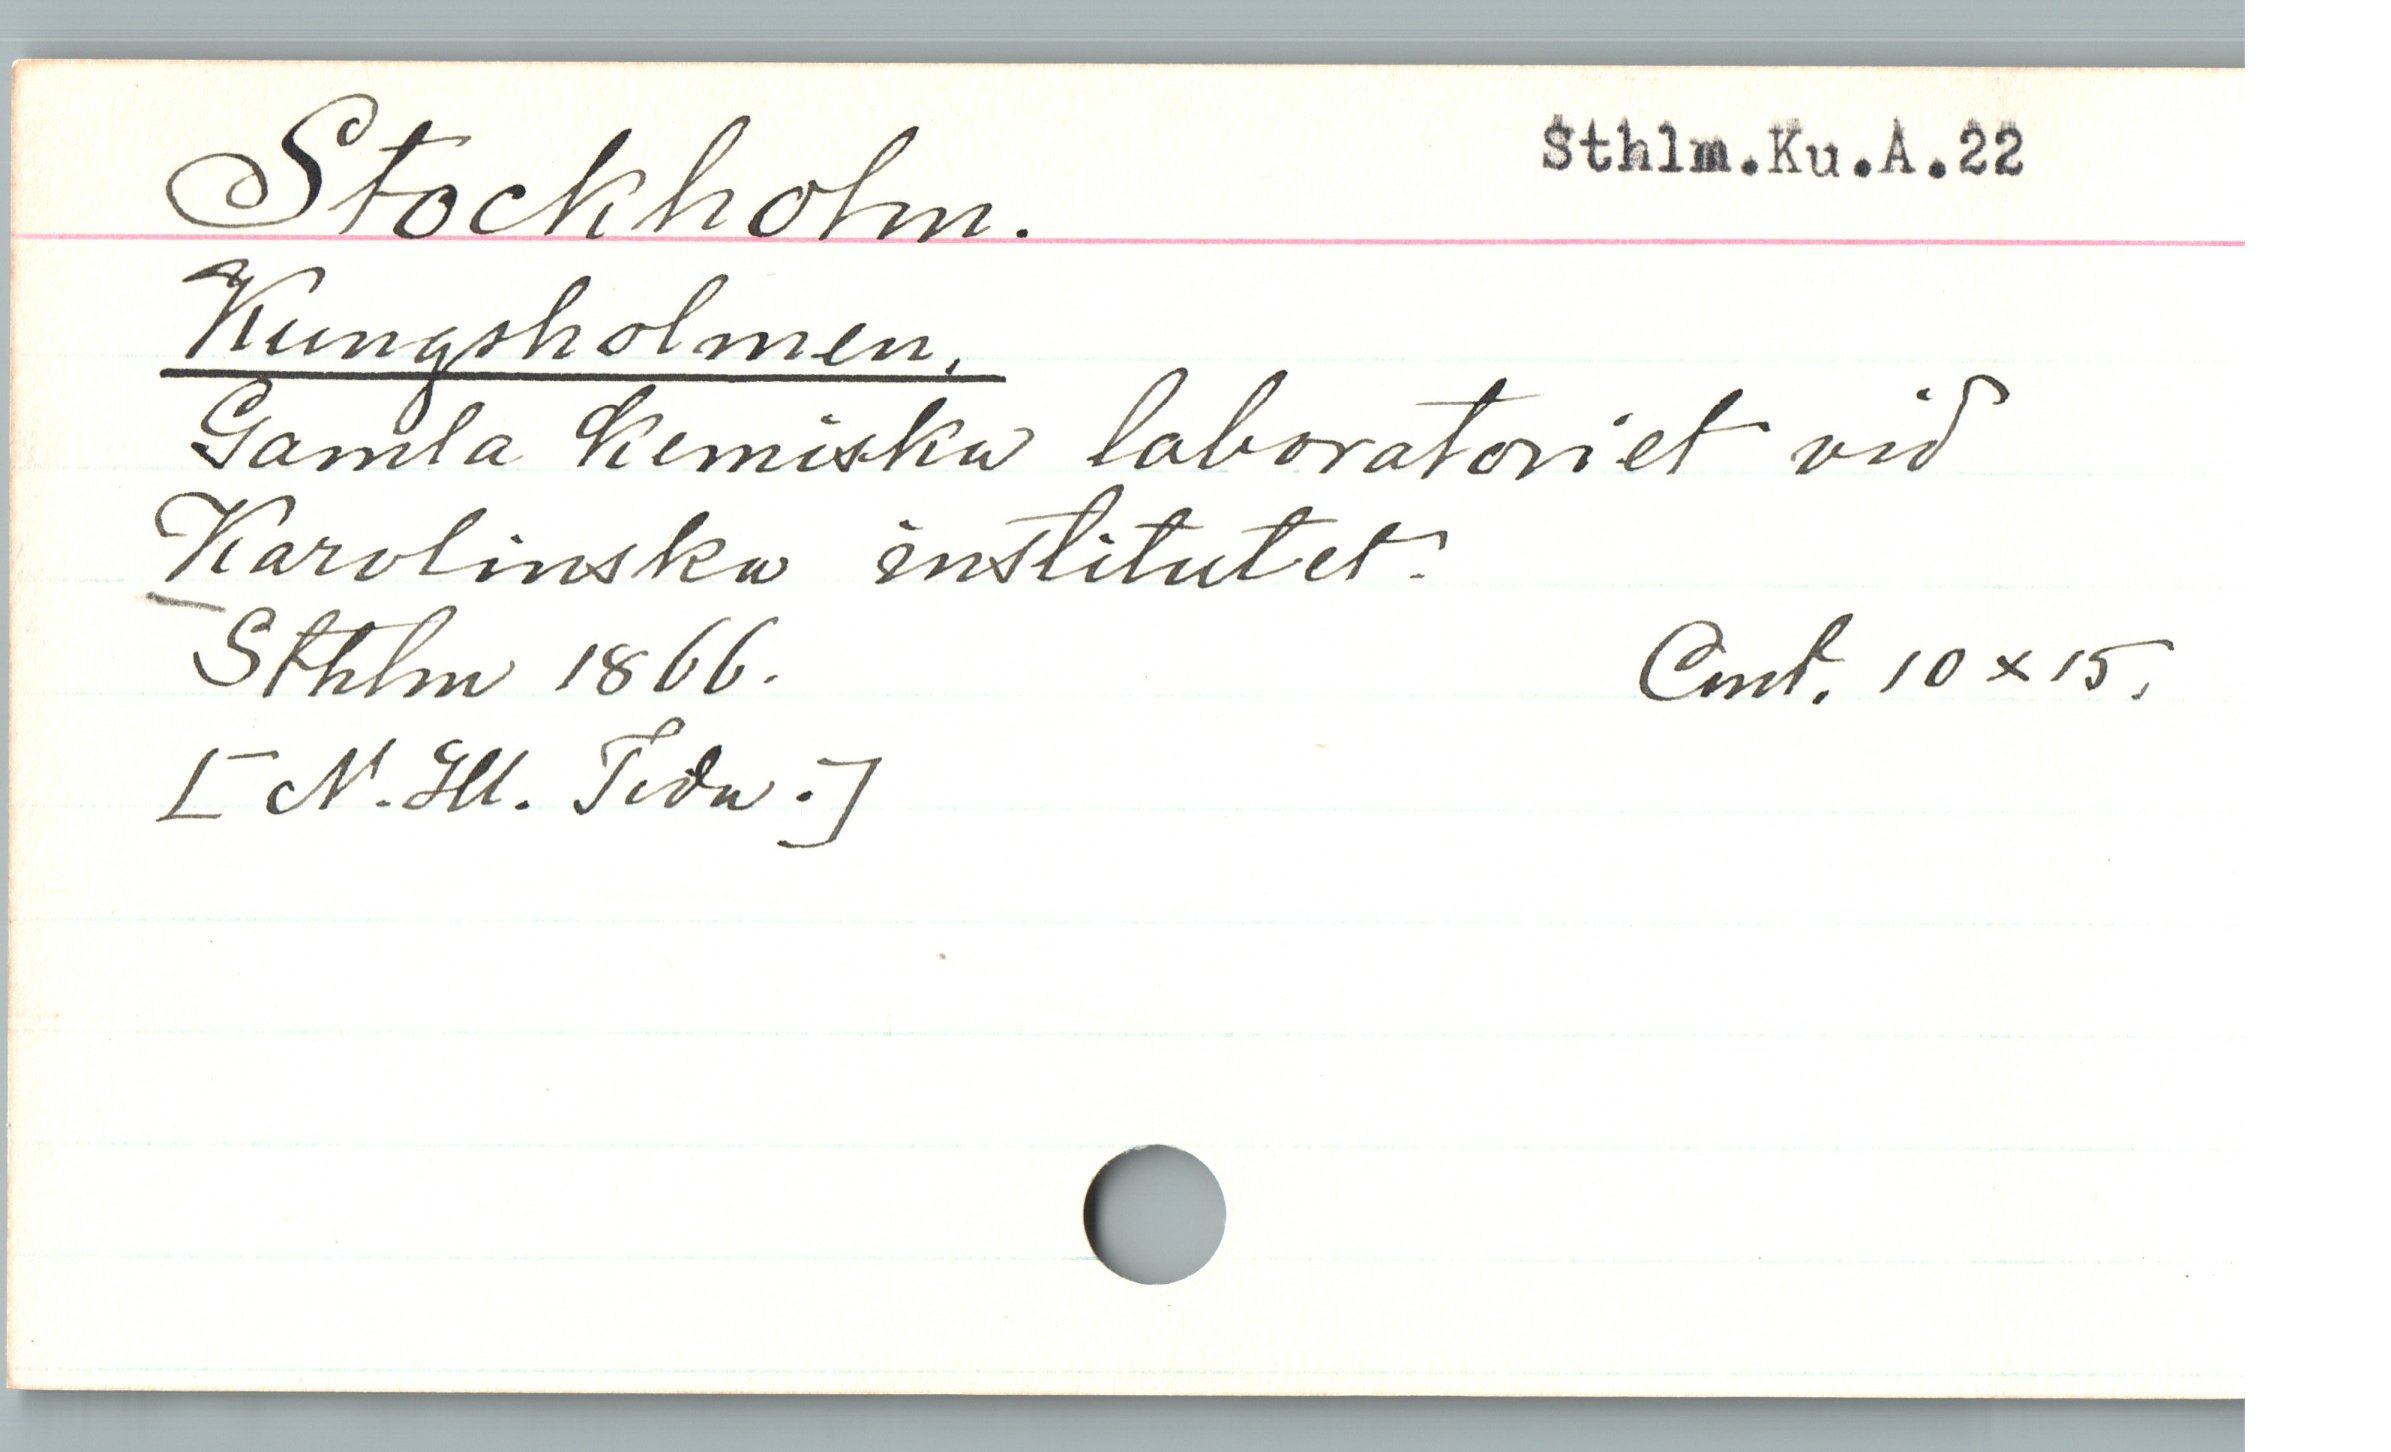 Stockholm. Sthlm.Ku.A.22
Kungsholmen.
Gamla kemiska laboratoriet vid
Karolinska institutet.
Sthlm 1866. 10 x 15.
[N. M. Tida.]